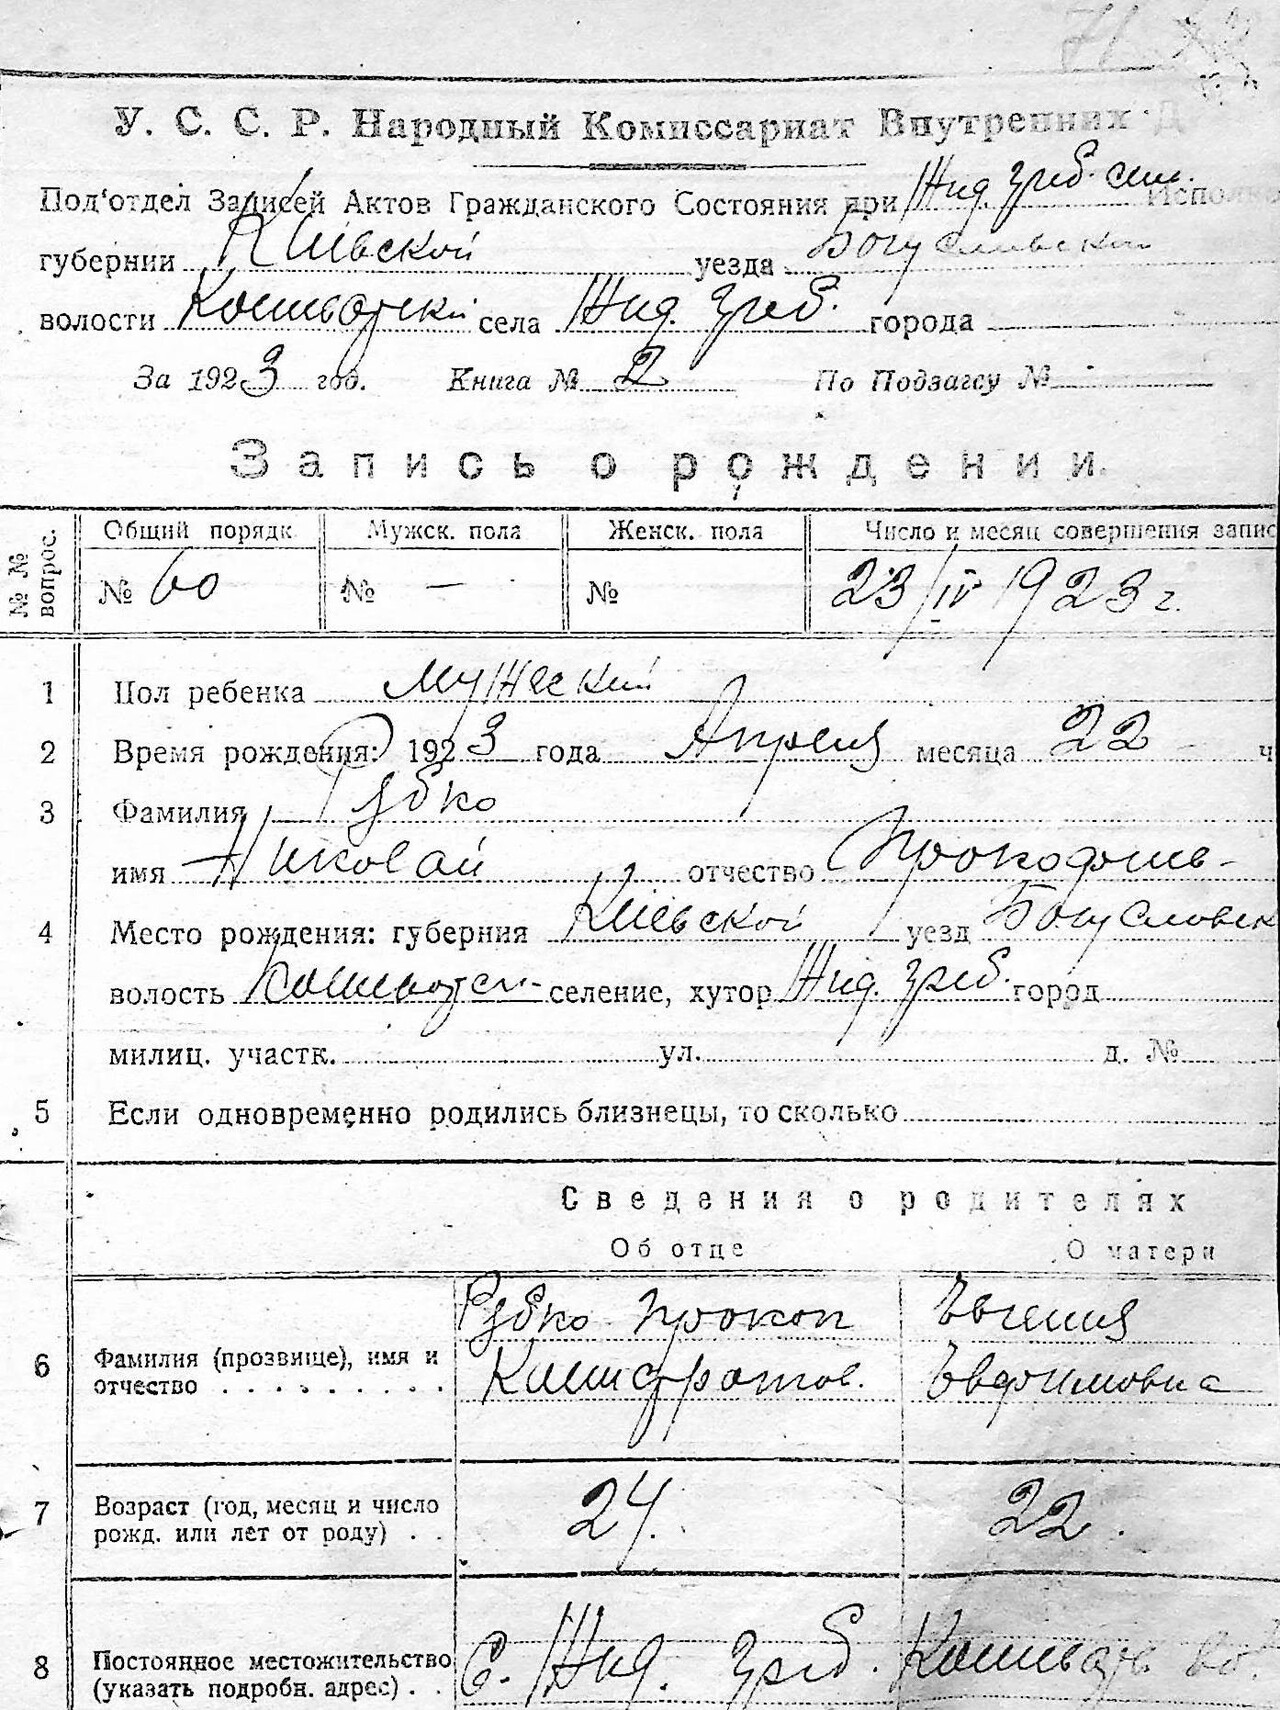 У. С. С. Р. Народный Комиссариат Внутренних Д
Под'отдел Записей Актов Гражданского Состояния при Жид. Греб. сел. Исполко
губернии Киевской уезда Богуславской
волости Кошеватской села Жид. Греб. города
За 1923 год. Книга № 2 По Подзагсу №
Запись о рождении.
№ № вопрос. Общий порядк. Мужск. пола Женск. пола Число и месяц совершения запис
№ 60 № — № 23/IV 1923 г.
1 Пол ребенка Мужеский
2 Время рождения: 1923 года Апреля месяца 22 ч
3 Фамилия Рябко
имя Николай отчество Прокофиев-
4 Место рождения: губерния Киевской уезд Богуславск
волость Кошеватск- селение, хутор Жид. Греб. город
милиц. участк. ул. д. №
5 Если одновременно родились близнецы, то сколько
Сведения о родителях
Об отце О матери
Рябко Прокоп Евгения
6 Фамилия (прозвище), имя и отчество Калистратов. Евфимовна
7 Возраст (год, месяц и число рожд. или лет от роду) 24. 22.
8 Постоянное местожительство (указать подробн. адрес) С. Жид. Греб. Кошеват. во.